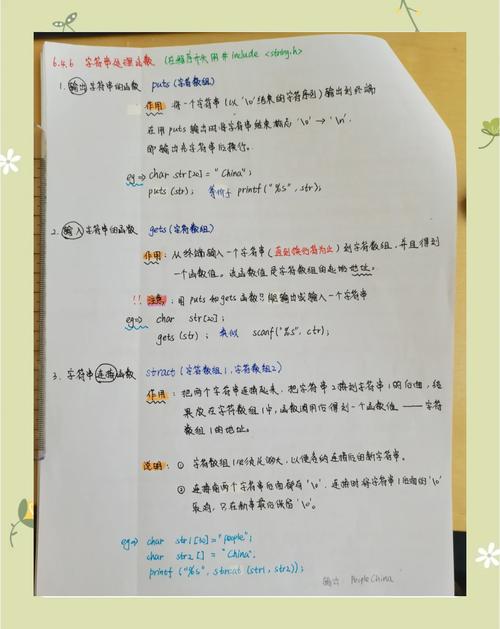 6.4.6 字符串处理函数 (在程序开头用 #include <string.h>
1. 输出字符串的函数 puts (字符数组)
作用: 将一个字符串 (以'\0'结束的字符序列) 输出到终端
在用puts输出时将字符串结束标志'\0'→'\n',
即输出完字符串后换行.
eg⇒ char str[20]="China";
puts(str); 等价于 printf("%s", str);
2. 输入字符串的函数 gets (字符数组)
作用: 从终端输入一个字符串 (直到换行符为止) 到字符数组, 并且得到
一个函数值。该函数值是字符数组的起始地址。
!! 注意: 用puts和gets函数只能输出或输入一个字符串
eg⇒ char str[20];
gets (str); 类似 scanf("%s", ctr);
3. 字符串连接函数 stract (字符数组1, 字符数组2)
作用: 把两个字符串连接起来, 把字符串2接到字符串1的后面, 结
果放在字符数组1中, 函数调用后得到一个函数值 —— 字符
数组1的地址。
说明: ① 字符数组1必须足够大, 以便容纳连接后的新字符串。
② 连接前两个字符串后面都有'\0', 连接时将字符串1后面的'\0'
取消, 只在新串最后保留'\0'。
eg⇒ char str1[30]="people";
char str2[]="China";
printf ("%s", strcat (str1, str2));
输出: PeopleChina